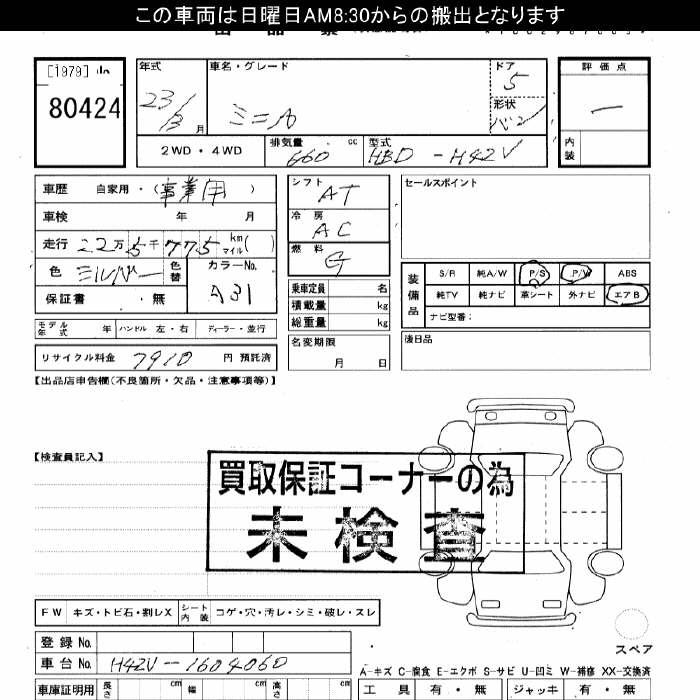 この車両は日曜日AM8:30からの搬出となります
[1979]
80424
年式 車名・グレード ドア 評価点
23/3 月 ミニカ 5
形状 バン
2WD・4WD 排気量 660 cc 型式 HBD-H42V 内装
車歴 自家用・(事業用)
シフト AT
セールスポイント
車検 年 月
冷房 AC
走行 22万5千775 km マイル ( )
燃料 G
色 シルバー 色替 カラーNo. A31
装備品 S/R 純A/W P/S P/W ABS
保証書 ・無
乗車定員 名
純TV 純ナビ 革シート 外ナビ エアB
積載量 kg
ナビ型番:
モデル年式 年 ハンドル 左・右 ディーラー・並行
総重量 kg
リサイクル料金 7910 円 預託済
名変期限 月 日
後日品
【出品店申告欄(不良箇所・欠品・注意事項等)】
【検査員記入】
買取保証コーナーの為
未検査
FW キズ・トビ石・割レX シート内装 コゲ・穴・汚レ・シミ・破レ・スレ
登録No.
スペア
車台No. H42V-1604060
A-キズ C-腐食 E-エクボ S-サビ U-凹ミ W-補修 XX-交換済
車庫証明用 長さ cm 幅 cm 高さ cm
工具 有・無 ジャッキ 有・無